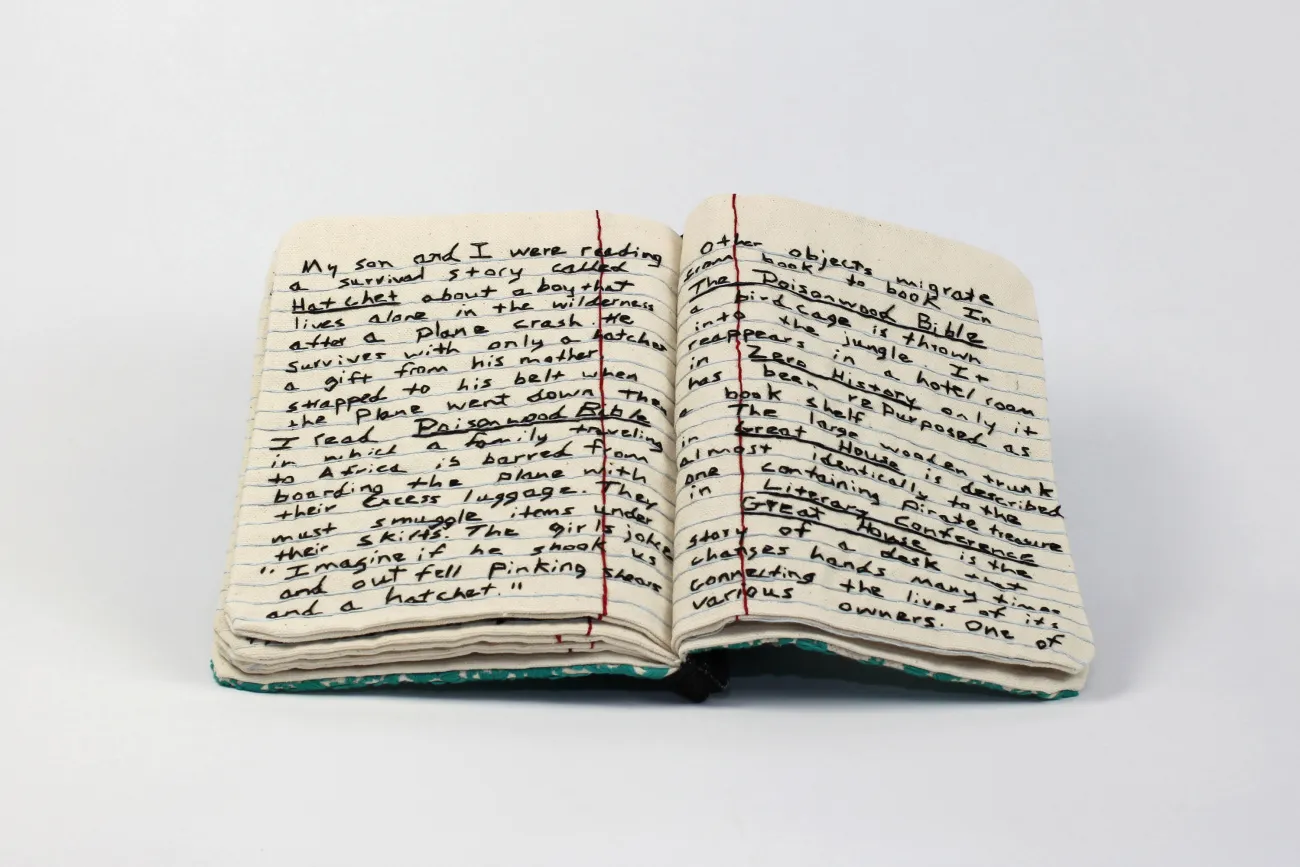 My son and I were reading
a survival story called
Hatchet about a boy that
lives alone in the wilderness
after a plane crash. He
survives with only a hatchet
a gift from his mother
strapped to his belt when
the plane went down then
I read Poisonwood Bible
in which a family traveling
to Africa is barred from
boarding the plane with
their Excess luggage. They
must smuggle items under
their skirts. The girls joke
"Imagine if he shook us
and out fell pinking shears
and a hatchet."
Other objects migrate
from book to book In
The Poisonwood Bible
a bird cage is thrown
into the jungle. It
reappears in a hotel room
in Zero History only it
has been repurposed as
a book shelf.
The large wooden trunk
in Great House is described
almost identically to the
one containing pirate treasure
in Literary Conference
Great House is the
story of a desk that
changes hands many times
connecting the lives of its
various owners. One of